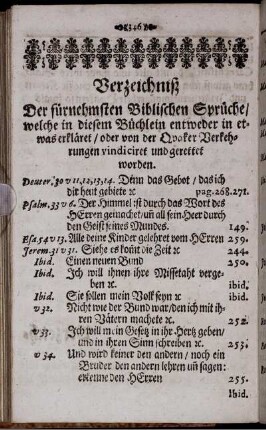 346
Verzeichniß
Der fürnehmsten Biblischen Sprüche/
welche in diesem Büchlein entweder in et-
was erkläret/ oder von der Qvaker Verkeh-
rungen vindiciret und gerettet
worden.
Deuter. 30 v 11, 12, 13, 14. Denn das Gebot/ das ich
dir heut gebiete ꝛc pag. 268. 271.
Psalm. 33 v 6. Der Himmel ist durch das Wort des
HErren gemachet/ uñ all sein Heer durch
den Geist seines Mundes. 149.
Esa. 54 v 13. Alle deine Kinder gelehret vom HErren 259.
Jerem. 31 v 31. Siehe es komt die Zeit ꝛc 244.
Ibid. Einen neuen Bund 250.
Ibid. Ich will ihnen ihre Missethat verge-
ben ꝛc ibid.
Ibid. Sie sollen mein Volk seyn ꝛc ibid.
v 32. Nicht wie der Bund war/ den ich mit ih-
ren Vätern machete ꝛc. 252.
v 33. Ich will mein Gesetz in ihr Hertz geben/
und in ihren Sinn schreiben ꝛc. 253.
v 34. Und wird keiner den andern/ noch ein
Bruder den andern lehren uñ sagen:
erkenne den HErren 255.
Ibid.